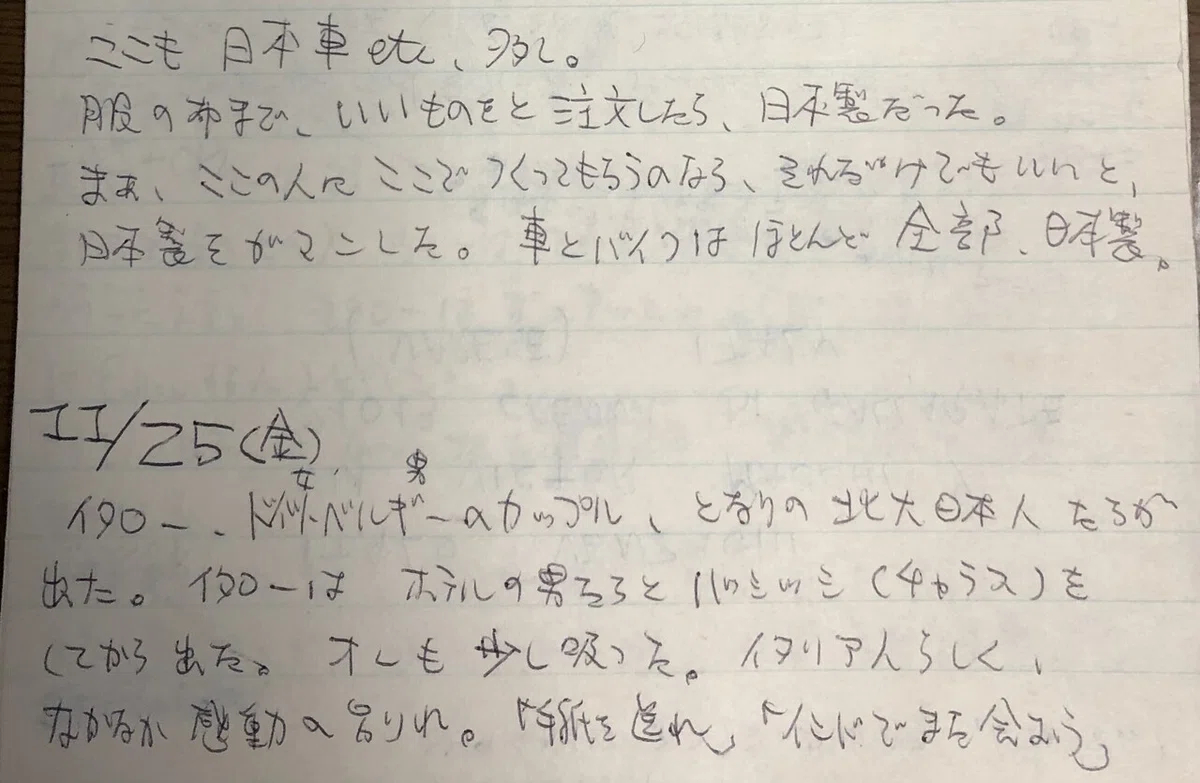 ここも 日本車 etc、多し。
服の布まで、いいものをと注文したら、日本製だった。
まぁ、ここの人に ここで つくってもらうのなら、それだけでもいいと、
日本製をがマンした。 車とバイクは ほとんど 全部、日本製。
11/25(金)
女 男
イタロー、ドイツ・ベルギーのカップル、となりの 北大日本人たちが
出た。 イタローは ホテルの男たちと ハッシッシ(チャラス)を
してから 出た。 オレも 少し吸った。 イタリアんらしく、
なかなか 感動の別れ。「手紙を送れ」「インドでまた会おう」